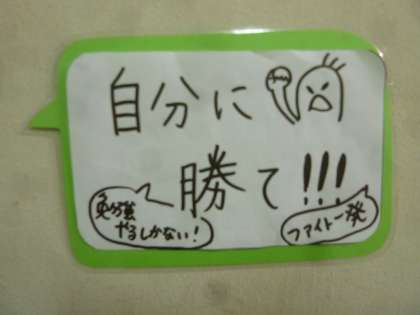 自分に
勝て!!!
勉強
やるしかない!
ファイト一発